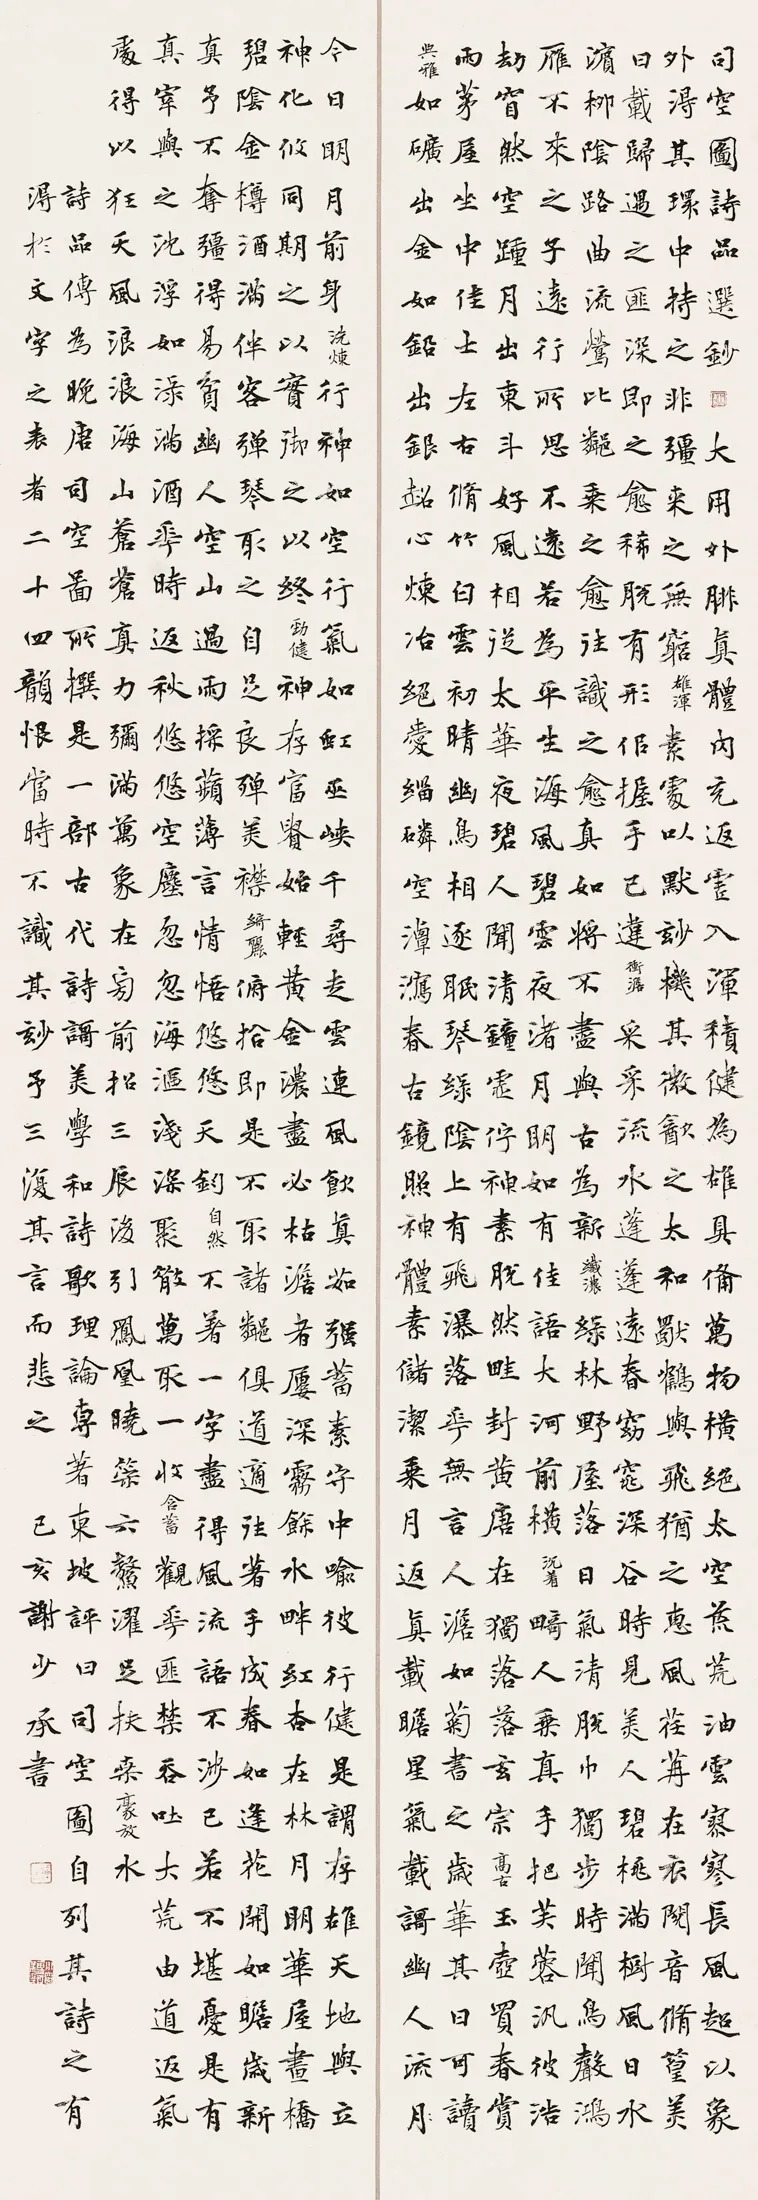 司空圖詩品選鈔 大用外腓真體內充返虛入渾積健為雄具備萬物橫絕太空荒荒油雲寥寥長風超以象
外得其環中持之非彊來之無窮 雄渾 素處以默妙機其微飲之太和獨鶴與飛猶之惠風荏苒在衣閱音脩篁美
曰載歸遇之匪深即之愈稀脫有形佀握手已違 衝澹 采采流水蓬蓬遠春窈窕深谷時見美人碧桃滿樹風日水
濱柳陰路曲流鶯比鄰乘之愈往識之愈真如將不盡與古為新 纖濃 綠林野屋落日氣清脫巾獨步時聞鳥聲鴻
雁不來之子遠行所思不遠若為平生海風碧雲夜渚月明如有佳語大河前橫 沉着 畸人乘真手把芙蓉汎彼浩
劫窅然空蹤月出東斗好風相從太華夜碧人聞清鐘虛佇神素脫然畦封黃唐在獨落落玄宗 高古 玉壺買春賞
雨茅屋坐中佳士左右脩竹白雲初晴幽鳥相逐眠琴綠陰上有飛瀑落華無言人澹如菊書之歲華其曰可讀
典雅 如礦出金如鉛出銀超心煉冶絕愛緇磷空潭瀉春古鏡照神體素儲潔乘月返真載瞻星氣載謌幽人流月
今日明月前身 洗煉 行神如空行氣如虹巫峽千尋走雲連風飲真茹强蓄素守中喻彼行健是謂存雄天地與立
神化攸同期之以實御之以終 勁健 神存富貴始輕黃金濃盡必枯澹者屢深霧餘水畔紅杏在林月明華屋畫橋
碧陰金樽酒滿伴客彈琴取之自足良殫美襟 綺麗 俯拾即是不取諸鄰俱道適往著手成春如逢花開如瞻歲新
真予不奪彊得易貧幽人空山過雨採蘋薄言情悟悠悠天鈞 自然 不著一字盡得風流語不涉已若不堪憂是有
真宰與之沈浮如淥滿酒華時返秋悠悠空塵忽忽海漚淺深聚散萬取一收 含蓄 觀華匪禁吞吐大荒由道返氣
處得以狂天風浪浪海山蒼蒼真力彌滿萬象在旁前招三辰後引鳳凰曉策六鰲濯足扶桒 豪放 水
詩品傳為晚唐司空啚所撰是一部古代詩謌美學和詩歌理論專著東坡評曰司空圖自列其詩之有
得於文字之表者二十四韻恨當時不識其妙予三復其言而悲之 己亥謝少承書